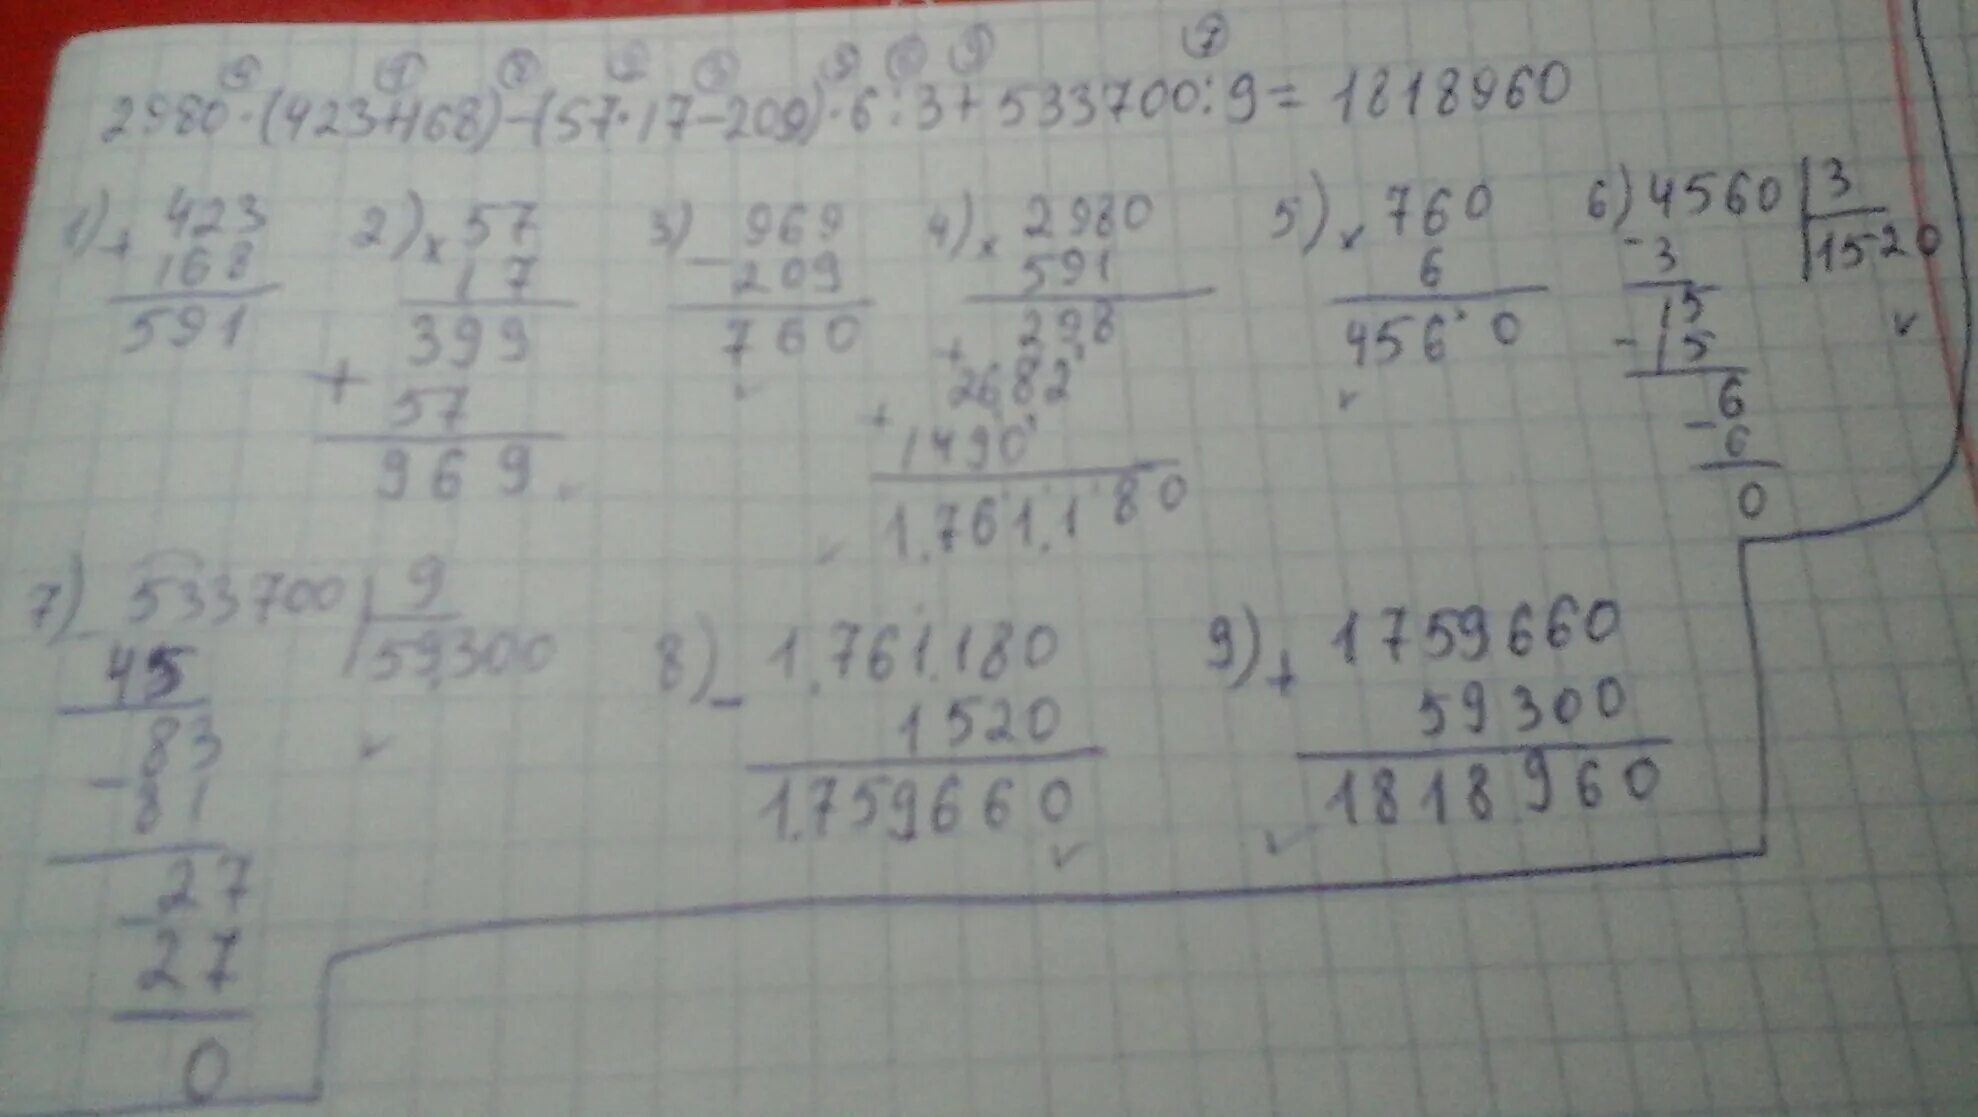 2980·(423+168)-(57·17-209)·6:3+533700:9=1818960
1) + 423
168
591
2) × 57
17
399
+ 57
969
3) - 969
209
760
4) × 2980
591
298
+ 2682
+ 1490
1.761.180
5) × 760
6
4560
6) 4560 | 3
1520
- 3
15
- 15
6
- 6
0
7) - 533700 | 9
59.300
45
83
- 81
27
- 27
0
8) - 1.761.180
1520
1.759660
9) + 1759660
59300
1818960